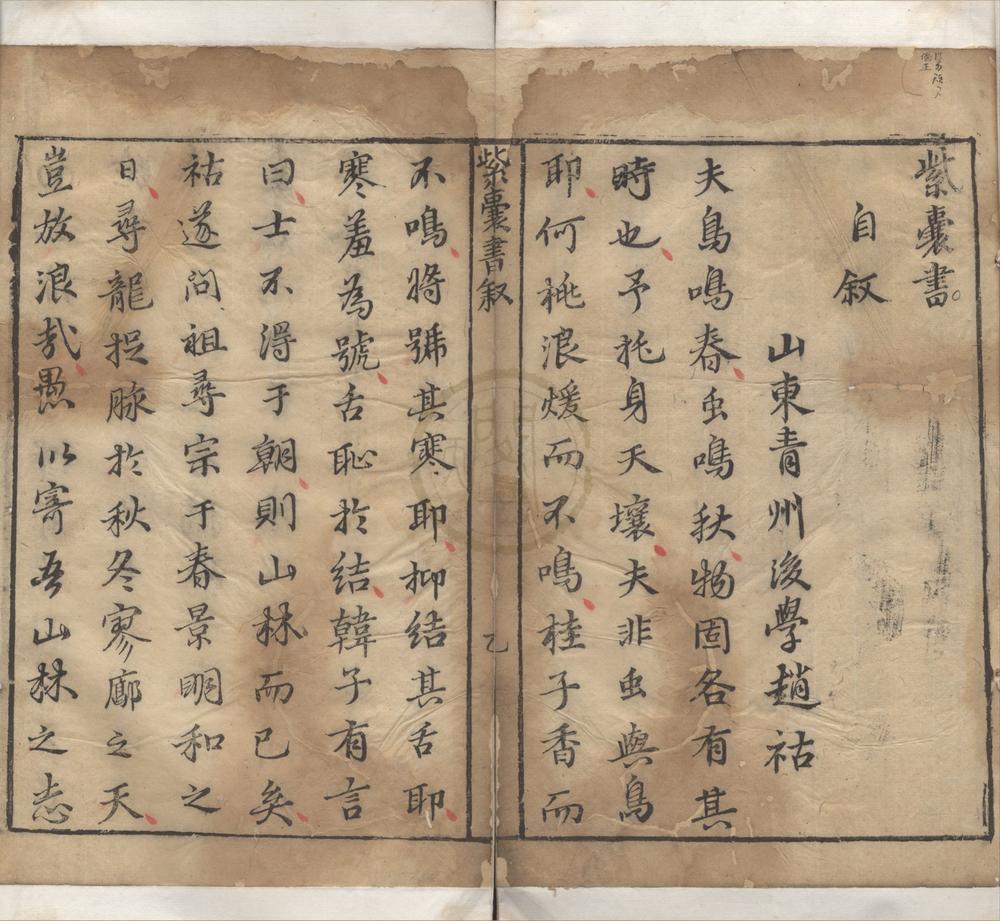 紫囊書
自叙
山東青州後學趙祜
夫鳥鳴春虫鳴秋物固各有其
時也予托身天壤夫非虫與鳥
耶何桃浪煖而不鳴桂子香而
紫囊書叙
乙
不鳴將號其寒耶抑結其舌耶
寒羞為號舌恥於結韓子有言
曰士不得于朝則山林而已矣
祜遂问祖尋宗于春景明和之
日尋龍捉脉於秋冬寥廓之天
豈放浪哉愚以寄吾山林之志